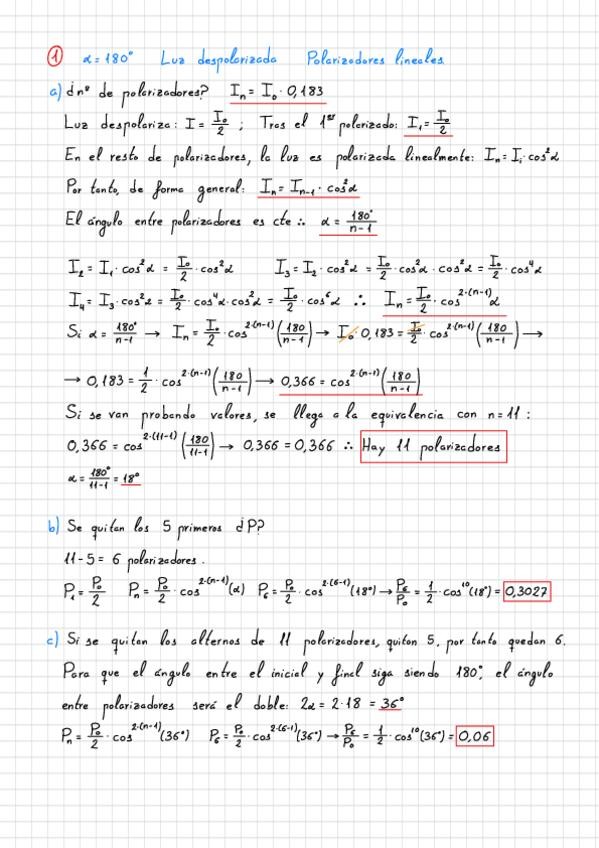 ① α = 180° Luz despolarizada Polarizadores lineales
a) ¿nº de polarizadores? Iₙ = I₀ · 0,183
Luz despolariza: I = I₀/2 ; Tras el 1er polarizado: I₁ = I₀/2
En el resto de polarizadores, la luz es polarizada linealmente: Iₙ = Iᵢ · cos²α
Por tanto, de forma general: Iₙ = Iₙ₋₁ · cos²α
El ángulo entre polarizadores es cte ∴ α = 180°/n-1
I₂ = I₁ · cos²α = I₀/2 · cos²α I₃ = I₂ · cos²α = I₀/2 · cos²α · cos²α = I₀/2 · cos⁴α
I₄ = I₃ · cos²α = I₀/2 · cos⁴α · cos²α = I₀/2 · cos⁶α ∴ Iₙ = I₀/2 · cos^2·(n-1) α
Si α = 180°/n-1 → Iₙ = I₀/2 · cos^2·(n-1) (180/n-1) → I₀ · 0,183 = I₀/2 · cos^2·(n-1) (180/n-1) →
→ 0,183 = 1/2 · cos^2·(n-1) (180/n-1) → 0,366 = cos^2·(n-1) (180/n-1)
Si se van probando valores, se llega a la equivalencia con n = 11 :
0,366 = cos^2·(11-1) (180/11-1) → 0,366 = 0,366 ∴ Hay 11 polarizadores
α = 180°/11-1 = 18°
b) Se quitan los 5 primeros ¿P?
11 - 5 = 6 polarizadores.
P₁ = P₀/2 Pₙ = P₀/2 · cos^2·(n-1) (α) P₆ = P₀/2 · cos^2·(6-1) (18°) → P₆/P₀ = 1/2 · cos¹⁰(18°) = 0,3027
c) Si se quitan los alternos de 11 polarizadores, quitan 5, por tanto quedan 6.
Para que el ángulo entre el inicial y final siga siendo 180°, el ángulo
entre polarizadores será el doble: 2α = 2 · 18 = 36°
Pₙ = P₀/2 · cos^2·(n-1) (36°) P₆ = P₀/2 · cos^2·(6-1) (36°) → P₆/P₀ = 1/2 · cos¹⁰(36°) = 0,06